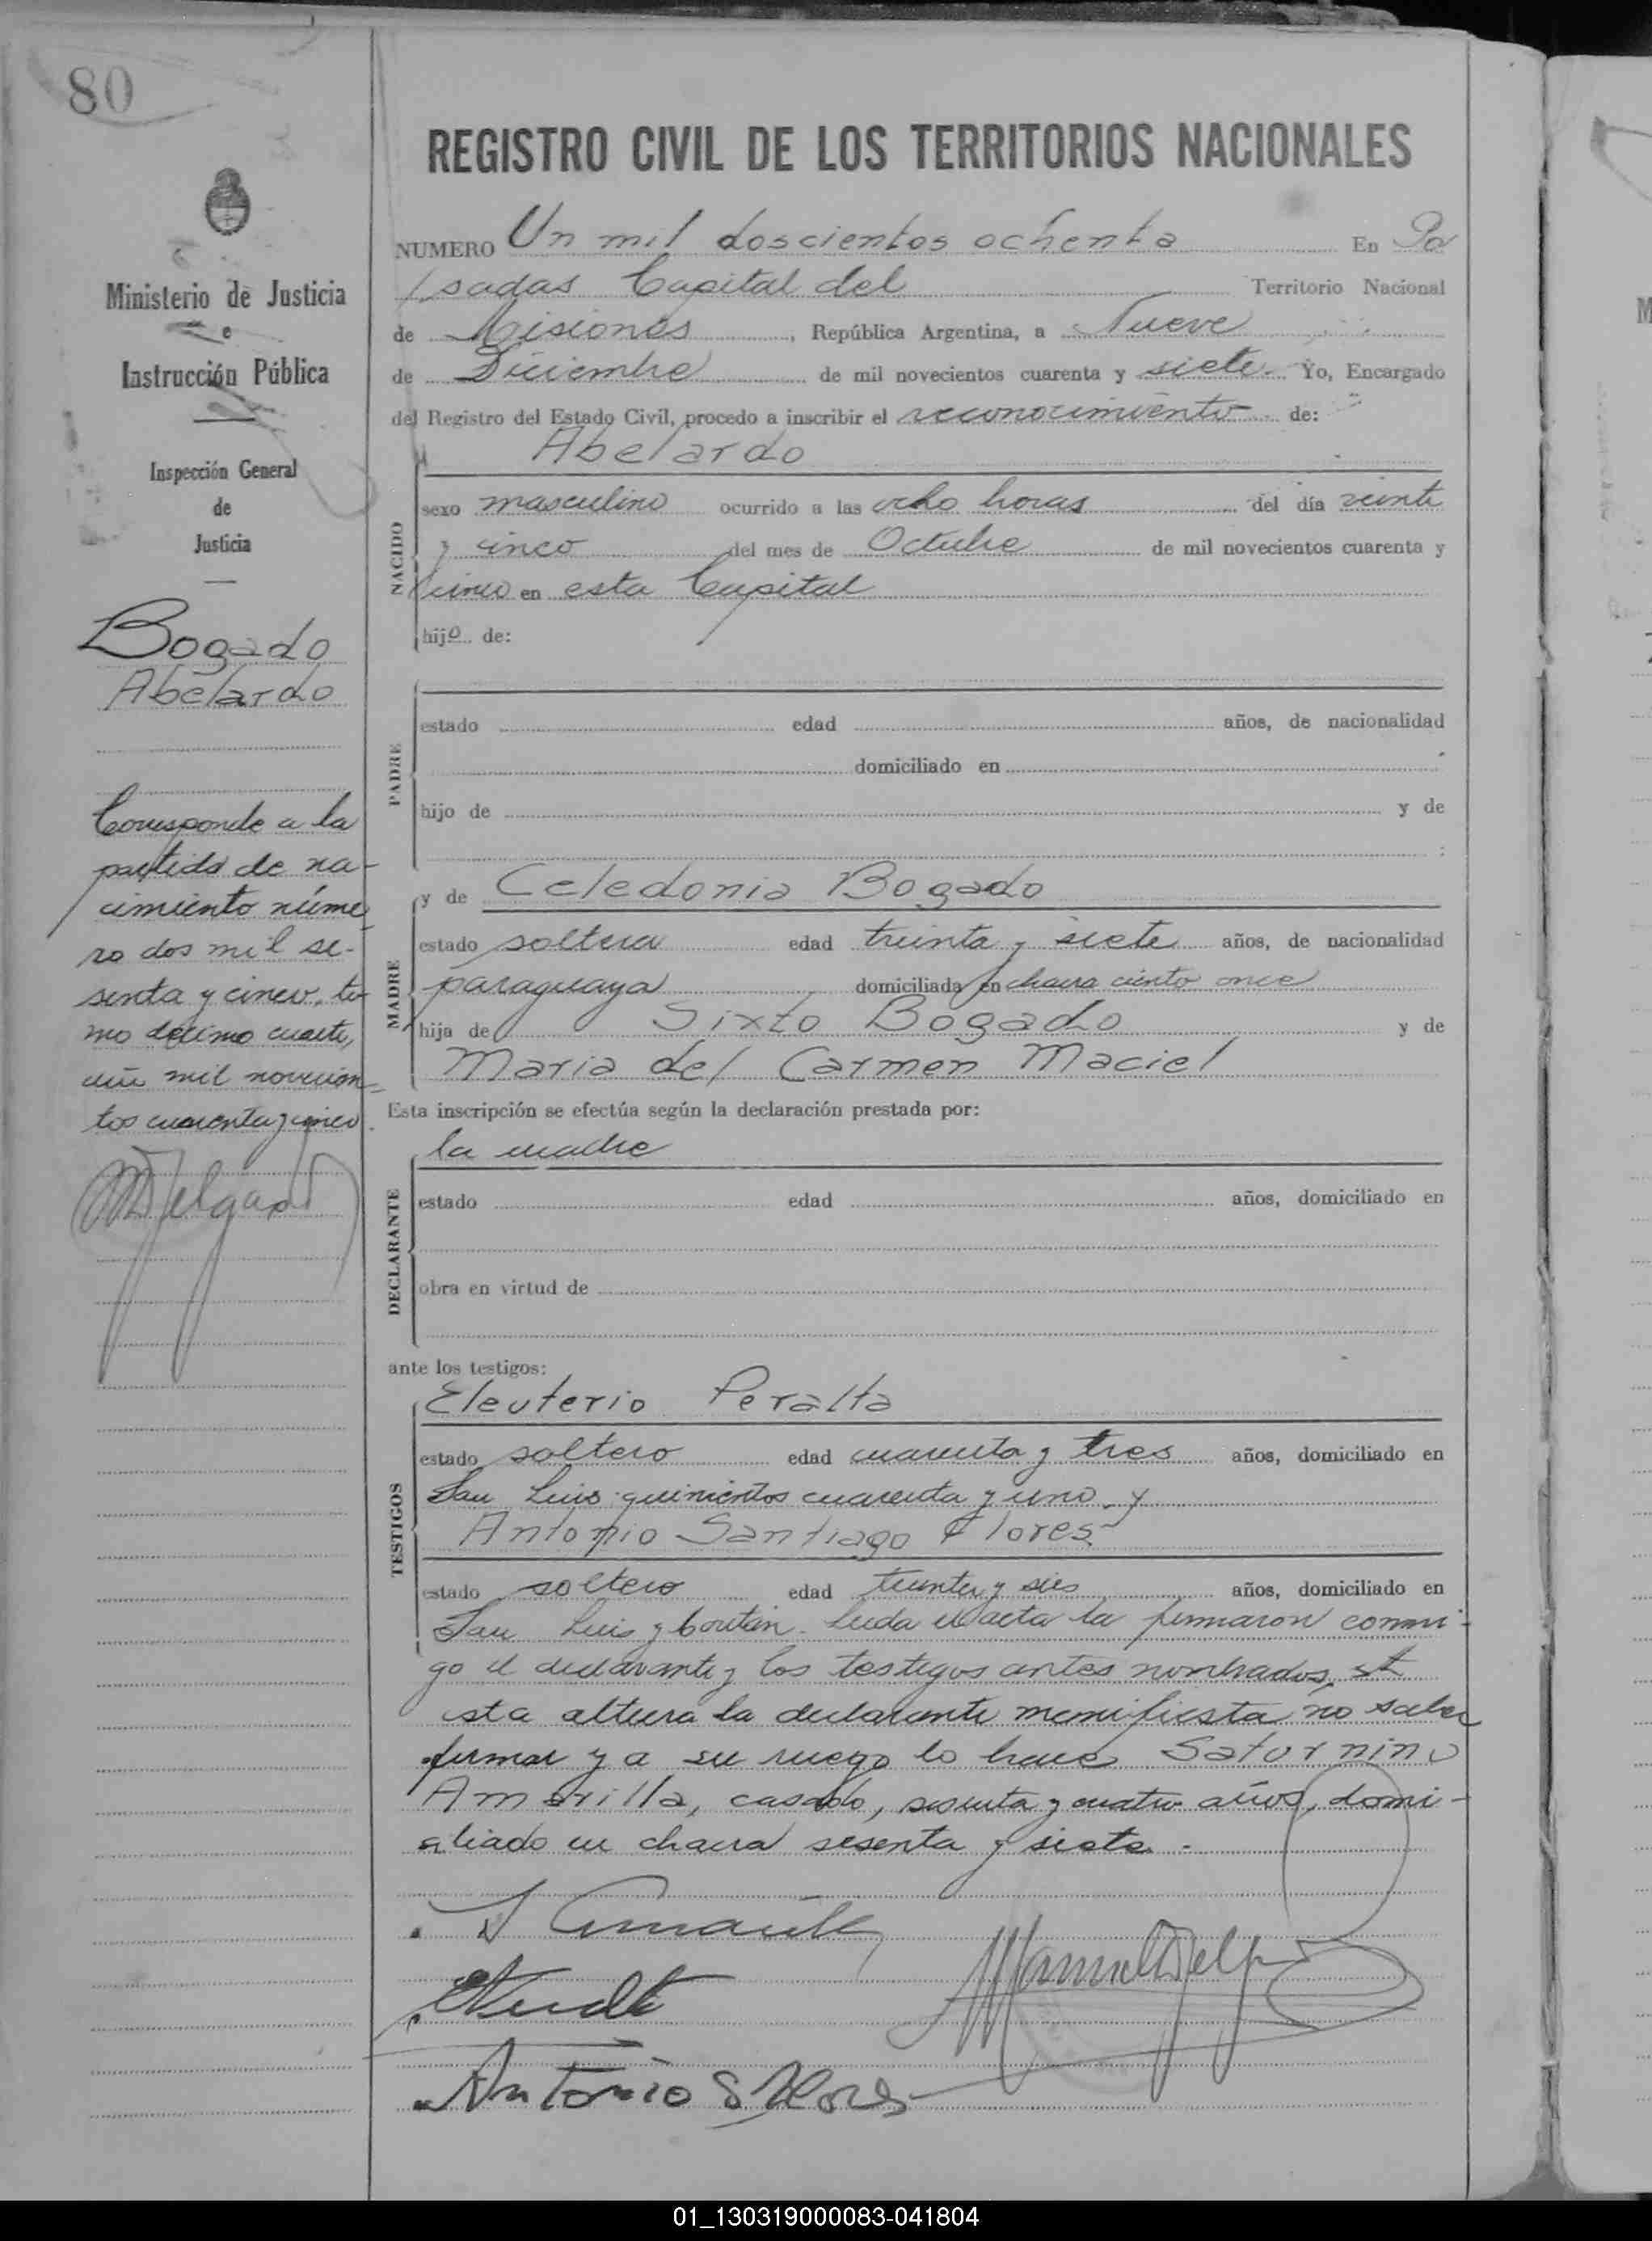 80
Ministerio de Justicia
e
Instrucción Pública
Inspección General
de
Justicia
Bogado
Abelardo
Corresponde a la
partida de na-
cimiento núme
ro dos mil se-
senta y cinco, to-
mo décimo cuarto,
año mil novecien-
tos cuarenta y cinco.
MDelgado
REGISTRO CIVIL DE LOS TERRITORIOS NACIONALES
NUMERO Un mil doscientos ochenta En Po
sadas Capital del Territorio Nacional
de Misiones, República Argentina, a Nueve
de Diciembre de mil novecientos cuarenta y siete. Yo, Encargado
del Registro del Estado Civil, procedo a inscribir el reconocimiento de:
Abelardo
NACIDO
sexo masculino ocurrido a las ocho horas del día veinti
y cinco del mes de Octubre de mil novecientos cuarenta y
cinco en esta Capital
hijo de:
PADRE
estado edad años, de nacionalidad
domiciliado en
hijo de y de
MADRE
y de Celedonia Bogado
estado soltera edad treinta y siete años, de nacionalidad
paraguaya domiciliada en chacra ciento once
hija de Sixto Bogado y de
Maria del Carmen Maciel
Esta inscripción se efectúa según la declaración prestada por:
DECLARANTE
la madre
estado edad años, domiciliado en
obra en virtud de
ante los testigos:
TESTIGOS
Eleuterio Peralta
estado soltero edad cuarenta y tres años, domiciliado en
San Luis quinientos cuarenta y uno. y
Antonio Santiago Flores
estado soltero edad treinta y seis años, domiciliado en
San Luis y Leida el acta la firmaron conmi-
go el declarante y los testigos antes nombrados,
esta altura la declarante manifiesta no saber
firmar y a su ruego lo hace Saturnino
Amarilla, casado, sesenta y cuatro años, domi-
ciliado en chacra sesenta y siete.-
S Amarilla
Antonio S Flores
01_130319000083-041804